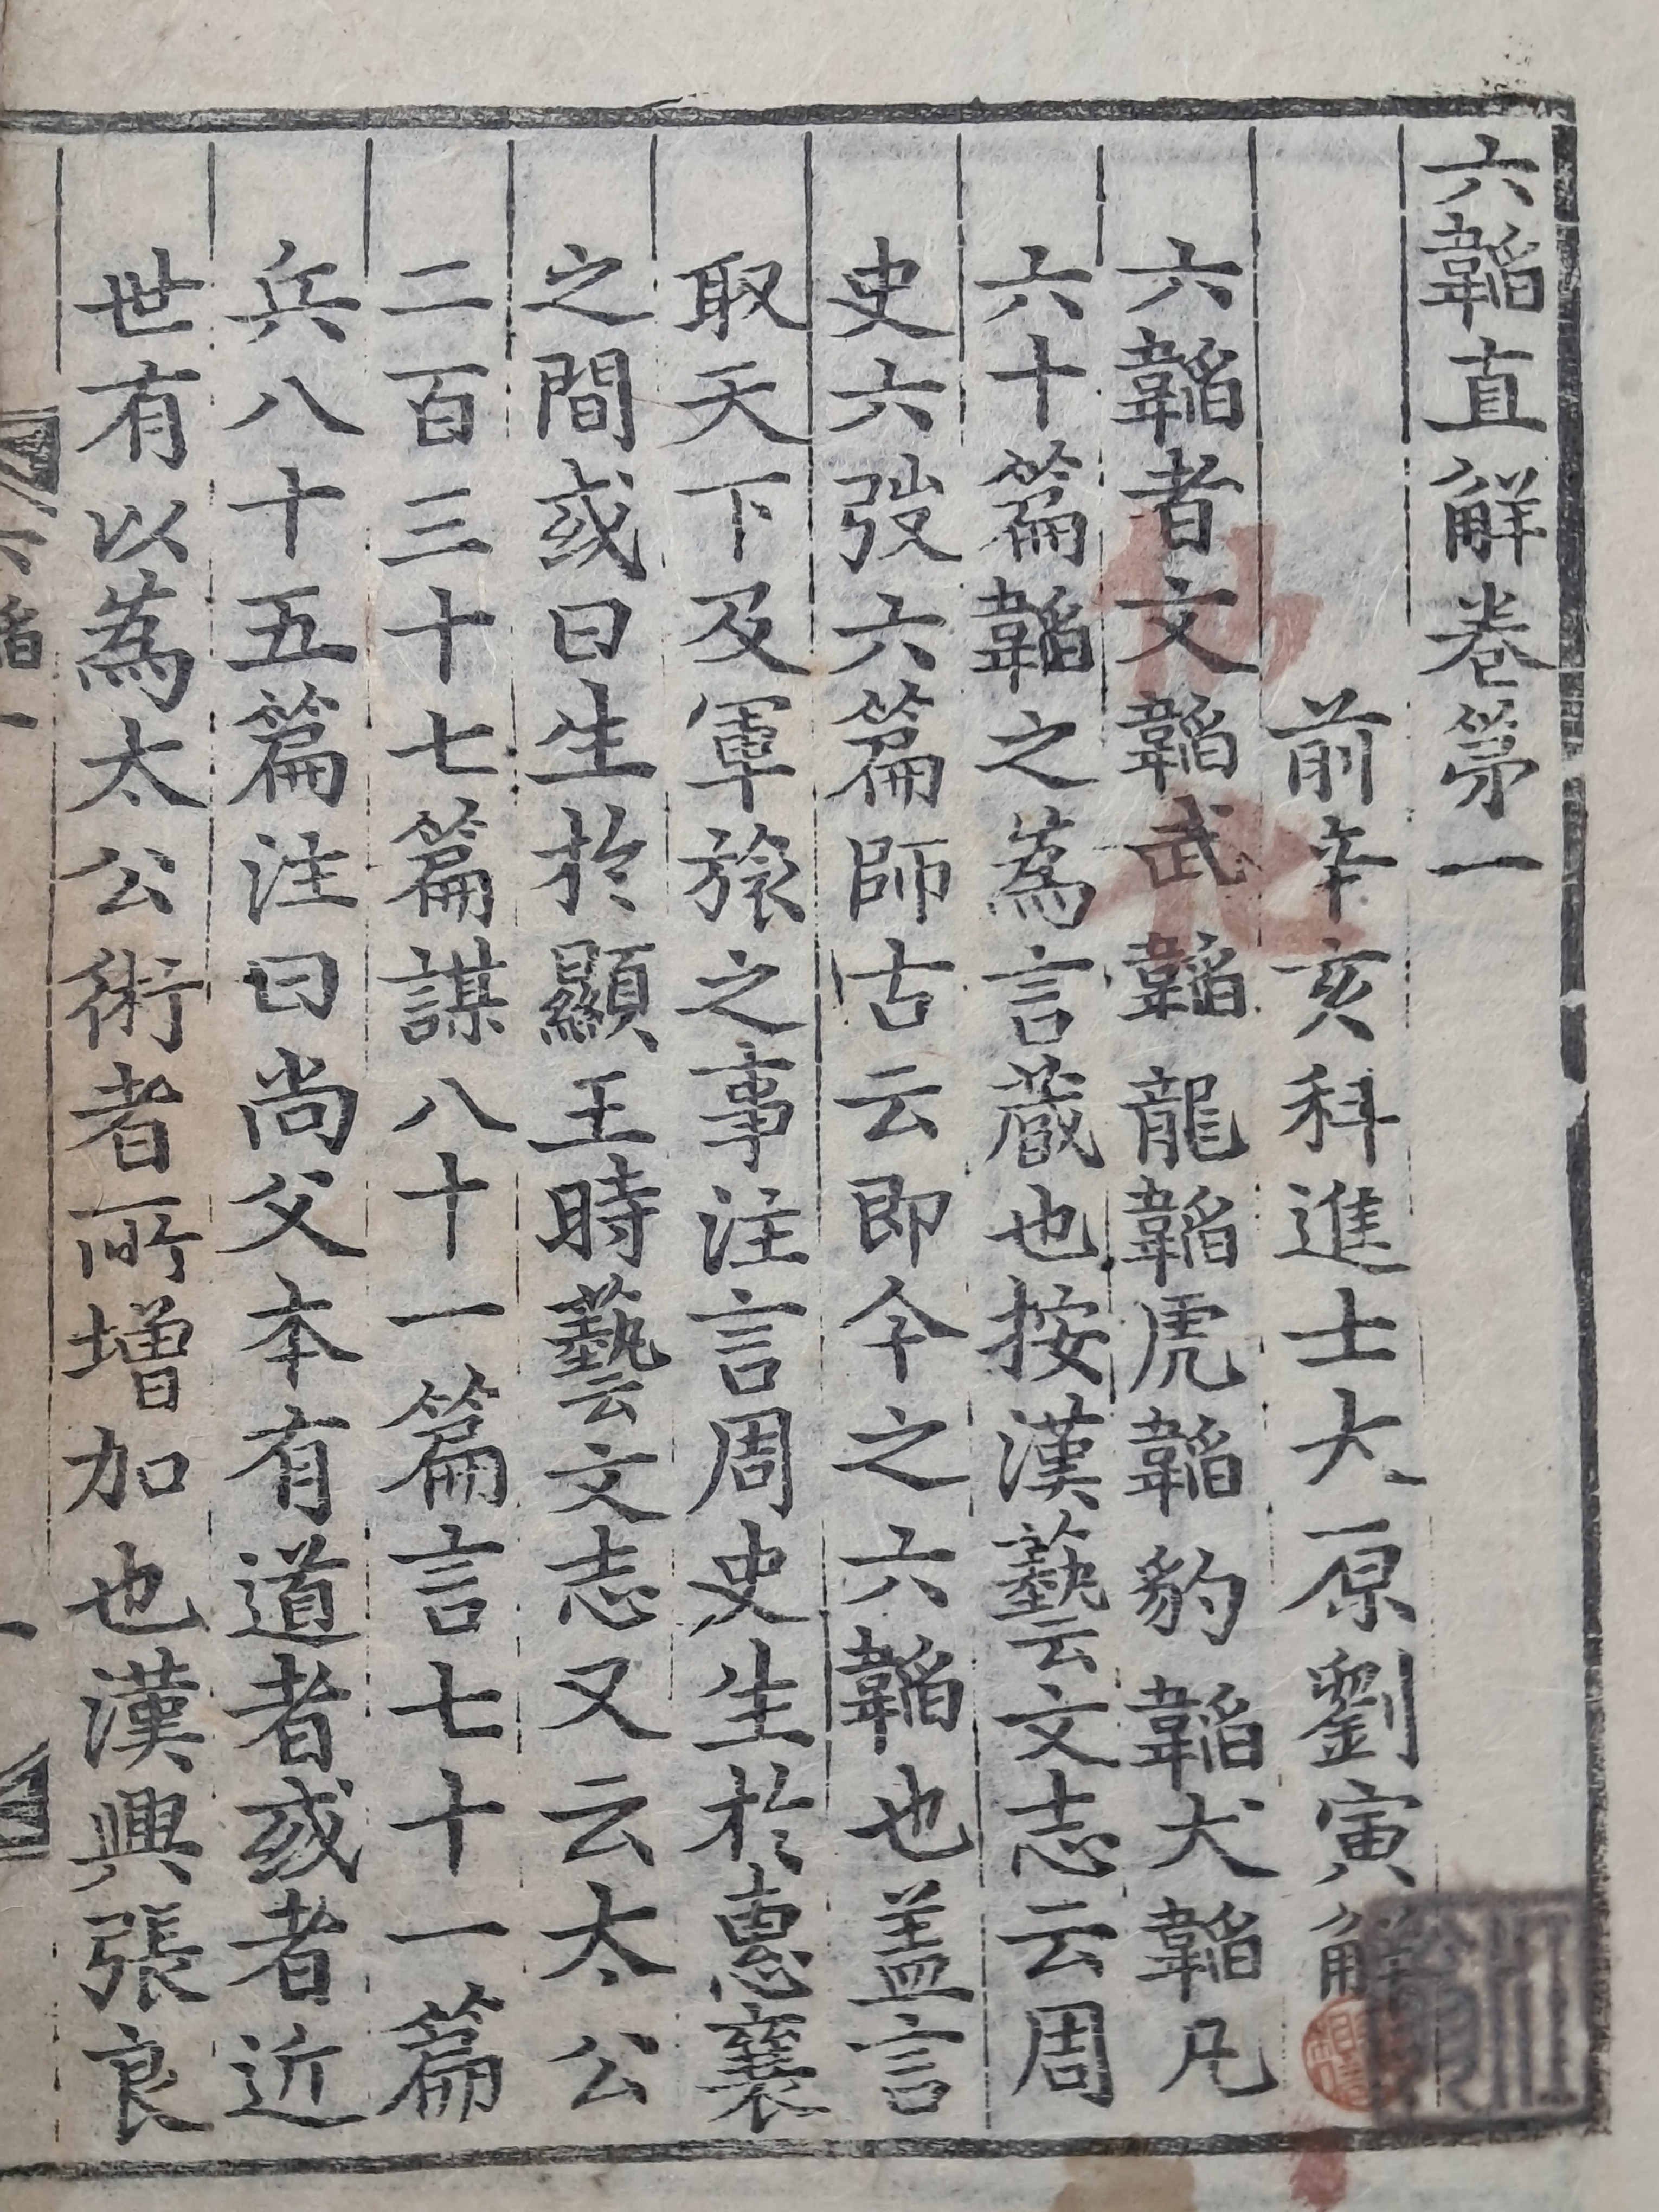 六韜直解卷第一
前辛亥科進士太原劉寅解
六韜者文韜武韜龍韜虎韜豹韜犬韜凡
六十篇韜之為言藏也按漢藝文志云周
史六弢六篇師古云即今之六韜也盖言
取天下及軍旅之事注言周史生於惠襄
之間或曰生於顯王時藝文志又云太公
二百三十七篇謀八十一篇言七十一篇
兵八十五篇注曰尚父本有道者或者近
世有以為太公術者所增加也漢興張良
六韜一